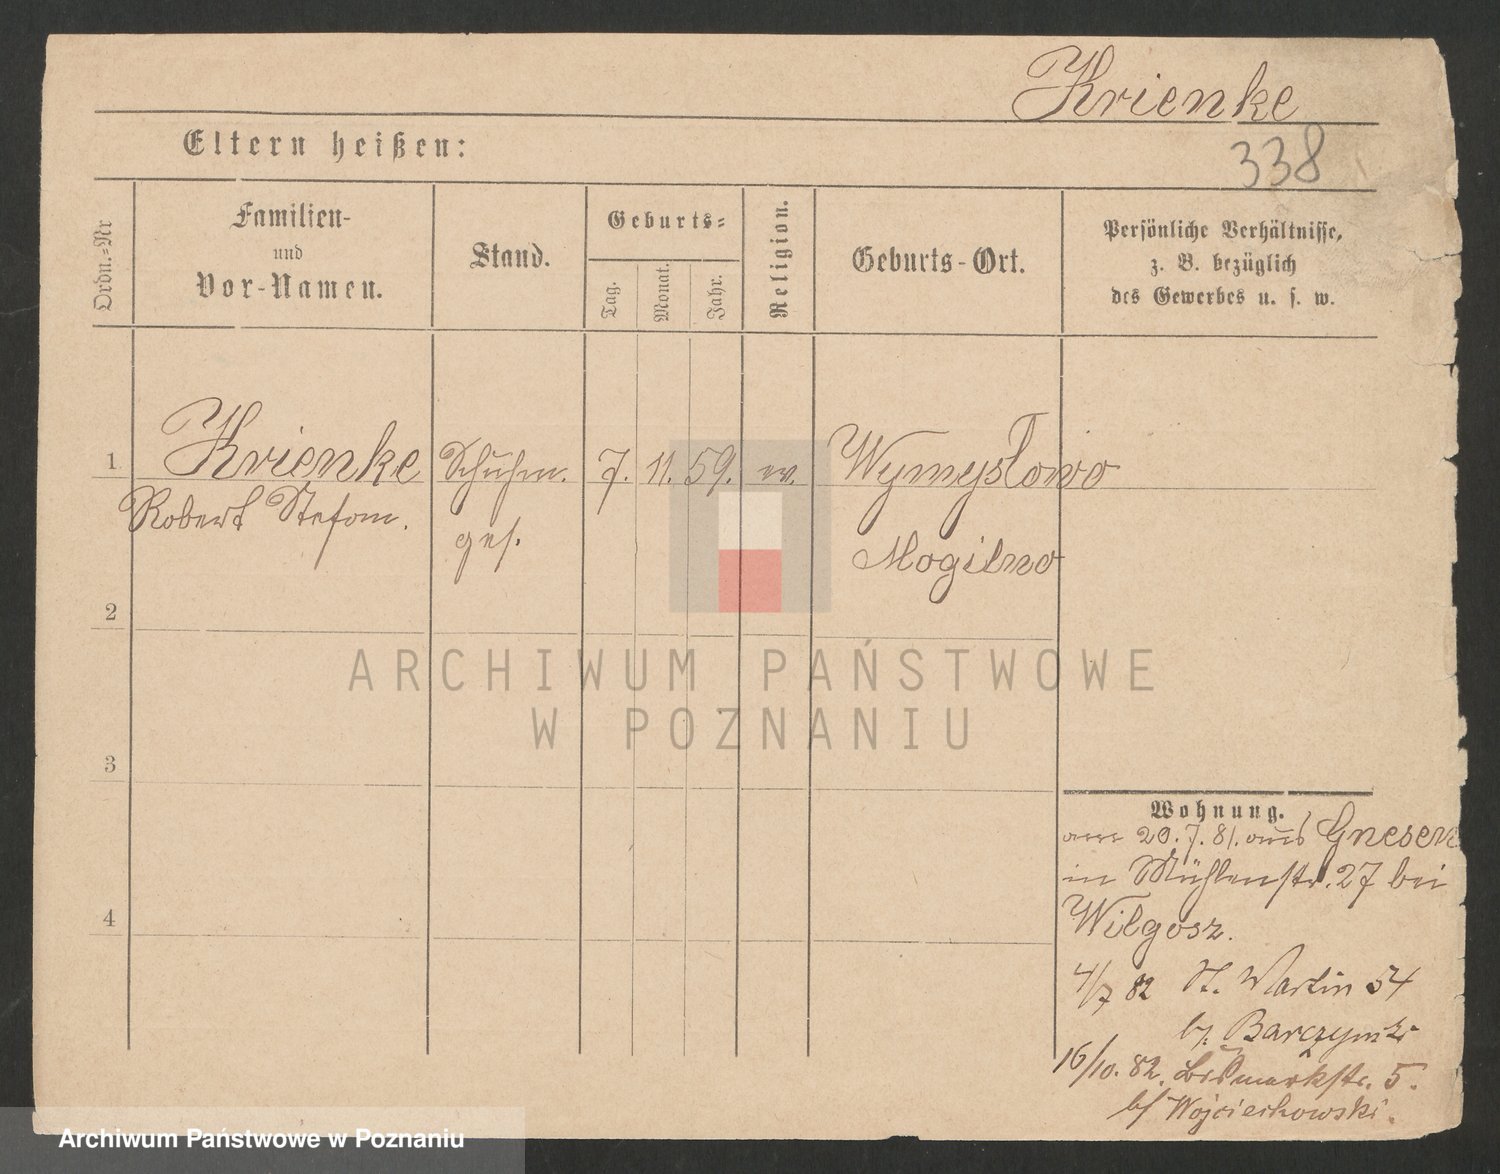 Krienke
338
Eltern heißen:
Ordn.-Nr
Familien-
und
Vor-Namen.
Stand.
Geburts-
Tag.
Monat.
Jahr.
Religion.
Geburts-Ort.
Persönliche Verhältnisse,
z. B. bezüglich
des Gewerbes u. s. w.
1 Krienke Schuhm. 7. 11. 59. ev. Wymysłowo
Robert Stefan. ges. Mogilno
2
3
4
ARCHIWUM PAŃSTWOWE
W POZNANIU
Wohnung.
am 20.7.81. aus Gnesen
in Mühlenstr. 27 bei
Wilgosz.
4/7 82 St. Martin 54
b. Barczynski
16/10. 82. Bismarkstr. 5.
bei Wojciechowski.
Archiwum Państwowe w Poznaniu